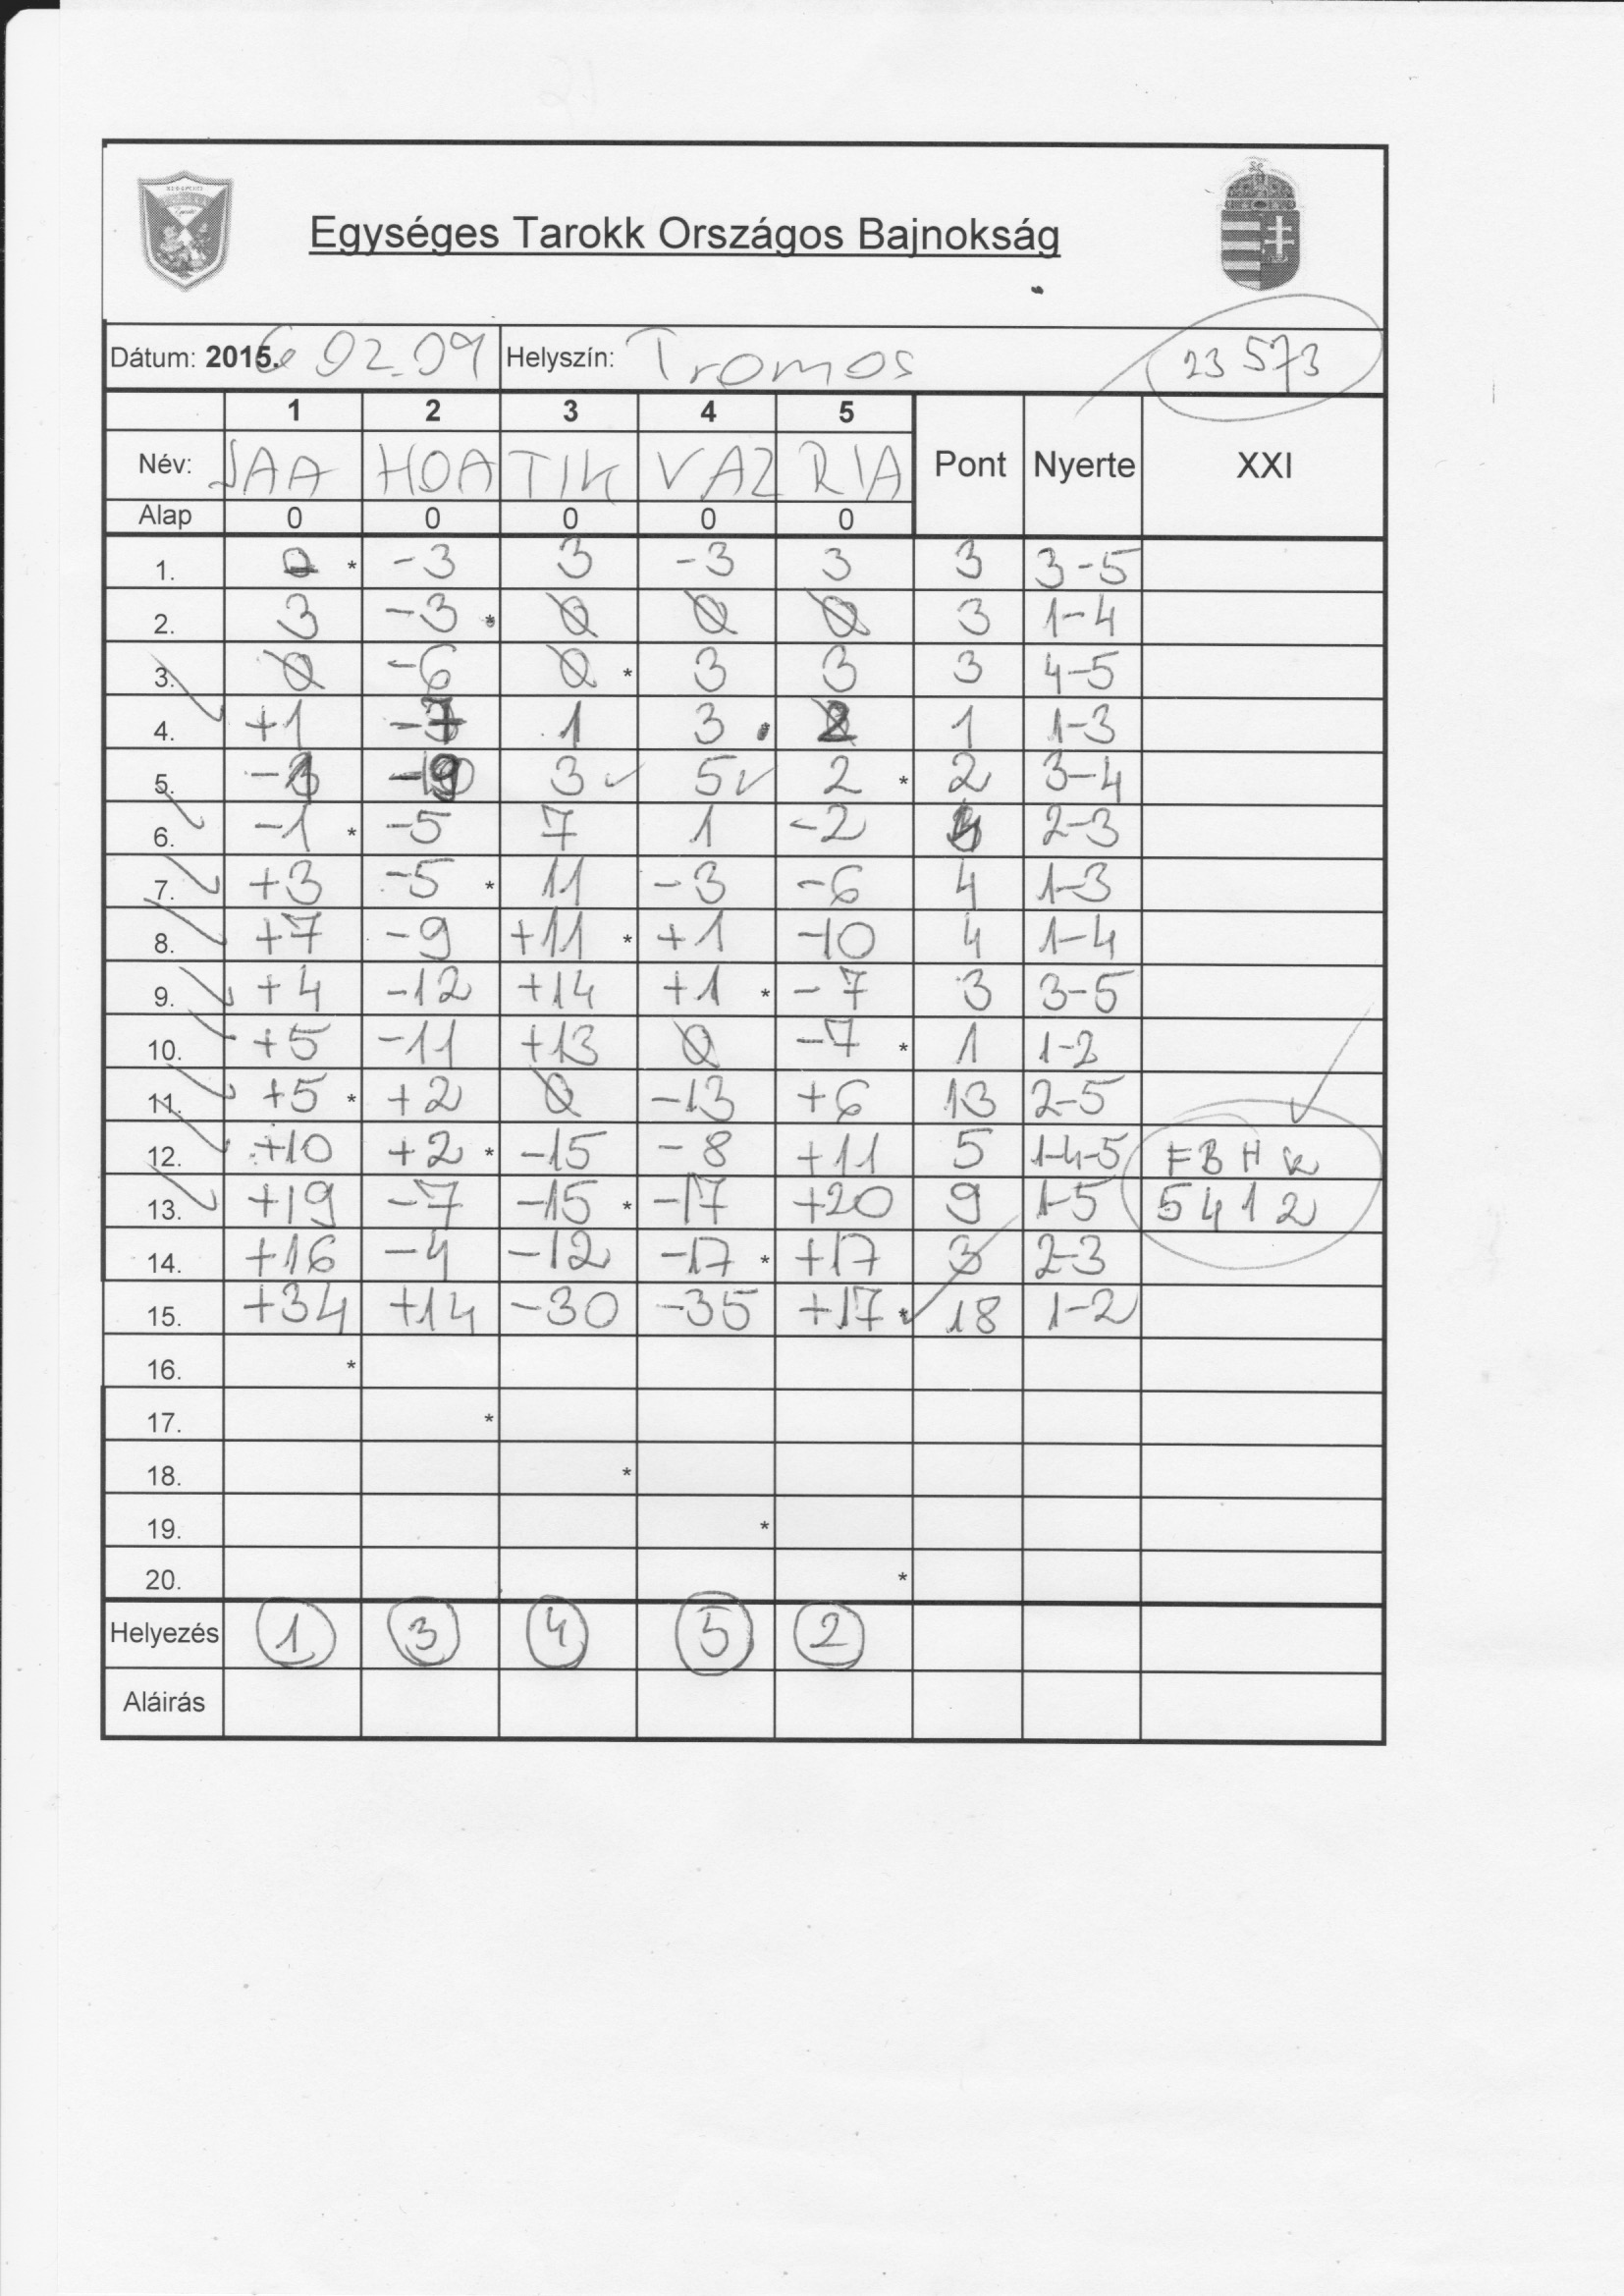 Egységes Tarokk Országos Bajnokság
Dátum: 2015. 6 02.09 Helyszín: Tromos 23 573
1 2 3 4 5 Pont Nyerte XXI
Név: JAA HOA TIK VAZ RIA
Alap 0 0 0 0 0
1. 0 * -3 3 -3 3 3 3-5
2. 3 -3 * 0 0 0 3 1-4
3. 0 -6 0 * 3 3 3 4-5
4. +1 -7 1 3 * 2 1 1-3
5. -1 -9 3 5 2 * 2 3-4
6. -1 * -5 7 1 -2 4 2-3
7. +3 -5 * 11 -3 -6 4 1-3
8. +7 -9 +11 * +1 -10 4 1-4
9. +4 -12 +14 +1 * -7 3 3-5
10. +5 -11 +13 0 -7 * 1 1-2
11. +5 * +2 0 -13 +6 13 2-5
12. +10 +2 * -15 -8 +11 5 1-4-5 F B H K
13. +19 -7 -15 * -17 +20 9 1-5 5 4 1 2
14. +16 -4 -12 -17 * +17 3 2-3
15. +34 +14 -30 -35 +17 * 18 1-2
16. *
17. *
18. *
19. *
20. *
Helyezés 1 3 4 5 2
Aláirás